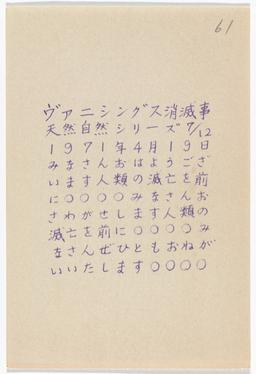 ヴァニシングス消滅事
天然自然シリーズ7/12
1971年4月19日
みなさんおはようござ
います人類の滅亡を前
に○○○○みなさんお
さわがせします人類の
滅亡を前に○○○○み
なさんぜひともおねが
いいたします○○○○
61